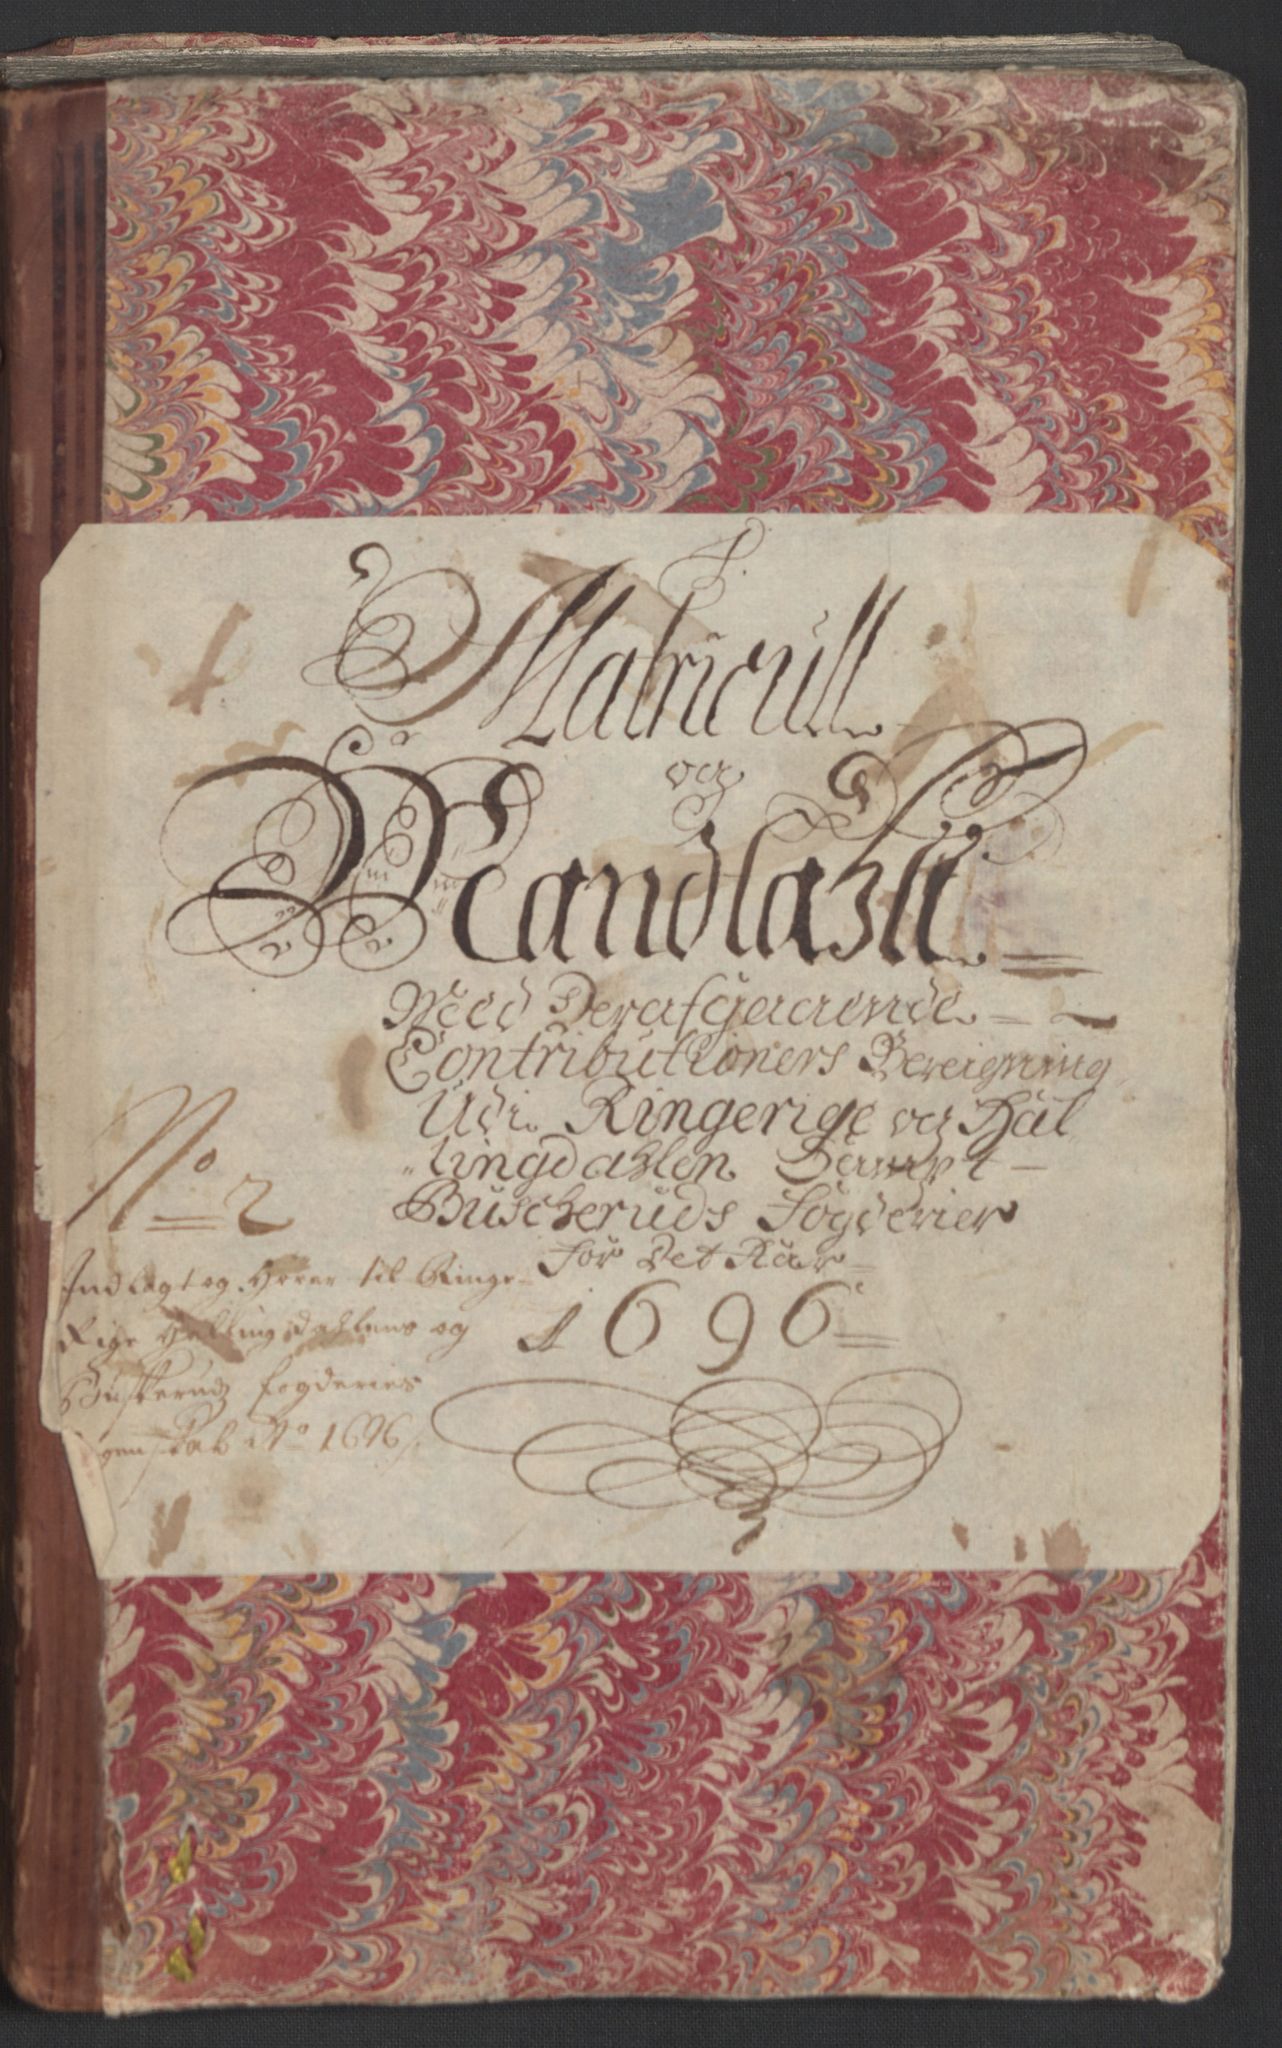 Matricull
og
Mandtaxt
Med Derafgaaende
Contributioners Bereigning
Udi Ringerige og Hal
lingdahlen Samt
Buscheruds fogderier
for Det Aar
1696
No 2
Indlagt og Hører til Ringe-
Rige Hallingdahlens og
Buskeruds fogderies
genskab Ao 1696